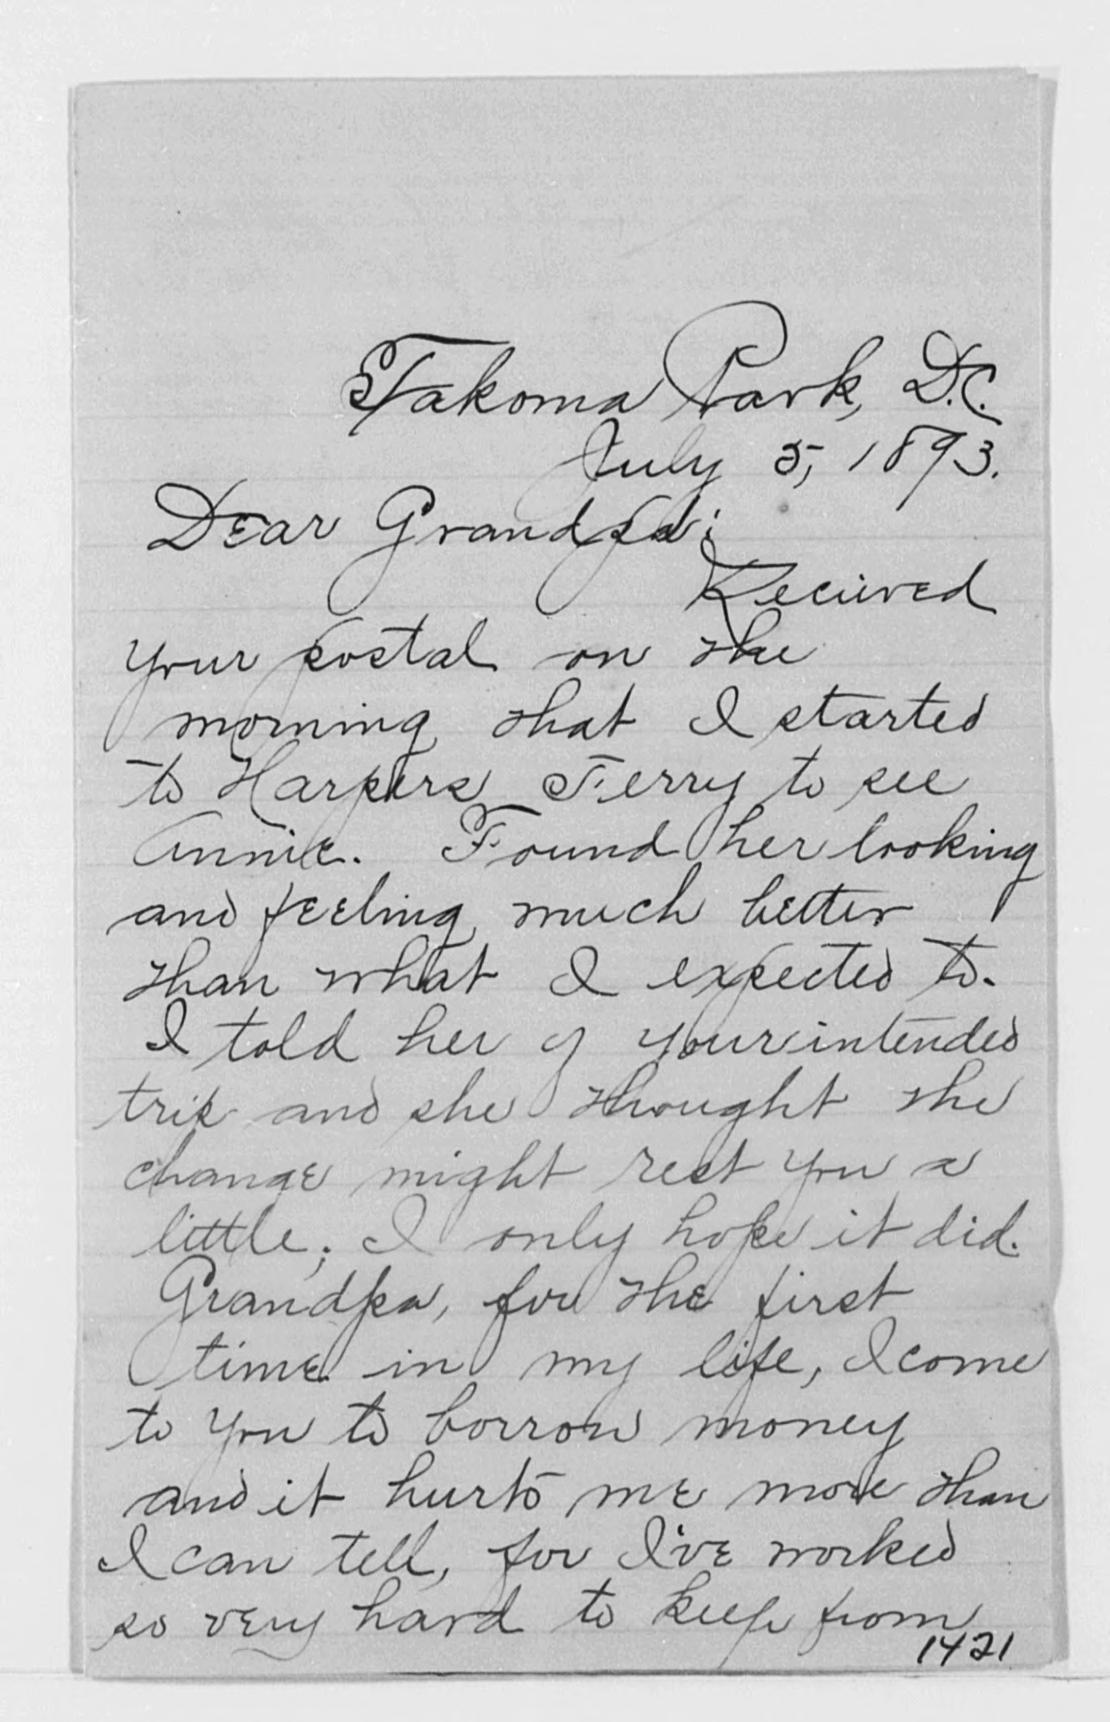 Takoma Park, D.C.
July 5, 1893.
Dear Grandpa:
Recieved
your postal on the
morning that I started
to Harpers Ferry to see
Annie. Found her looking
and feeling much better
than what I expected to.
I told her of your intended
trip and she thought the
change might rest you a
little; I only hope it did.
Grandpa, for the first
time in my life, I come
to you to borrow money
and it hurts me more than
I can tell, for I've worked
so very hard to keep from
1421